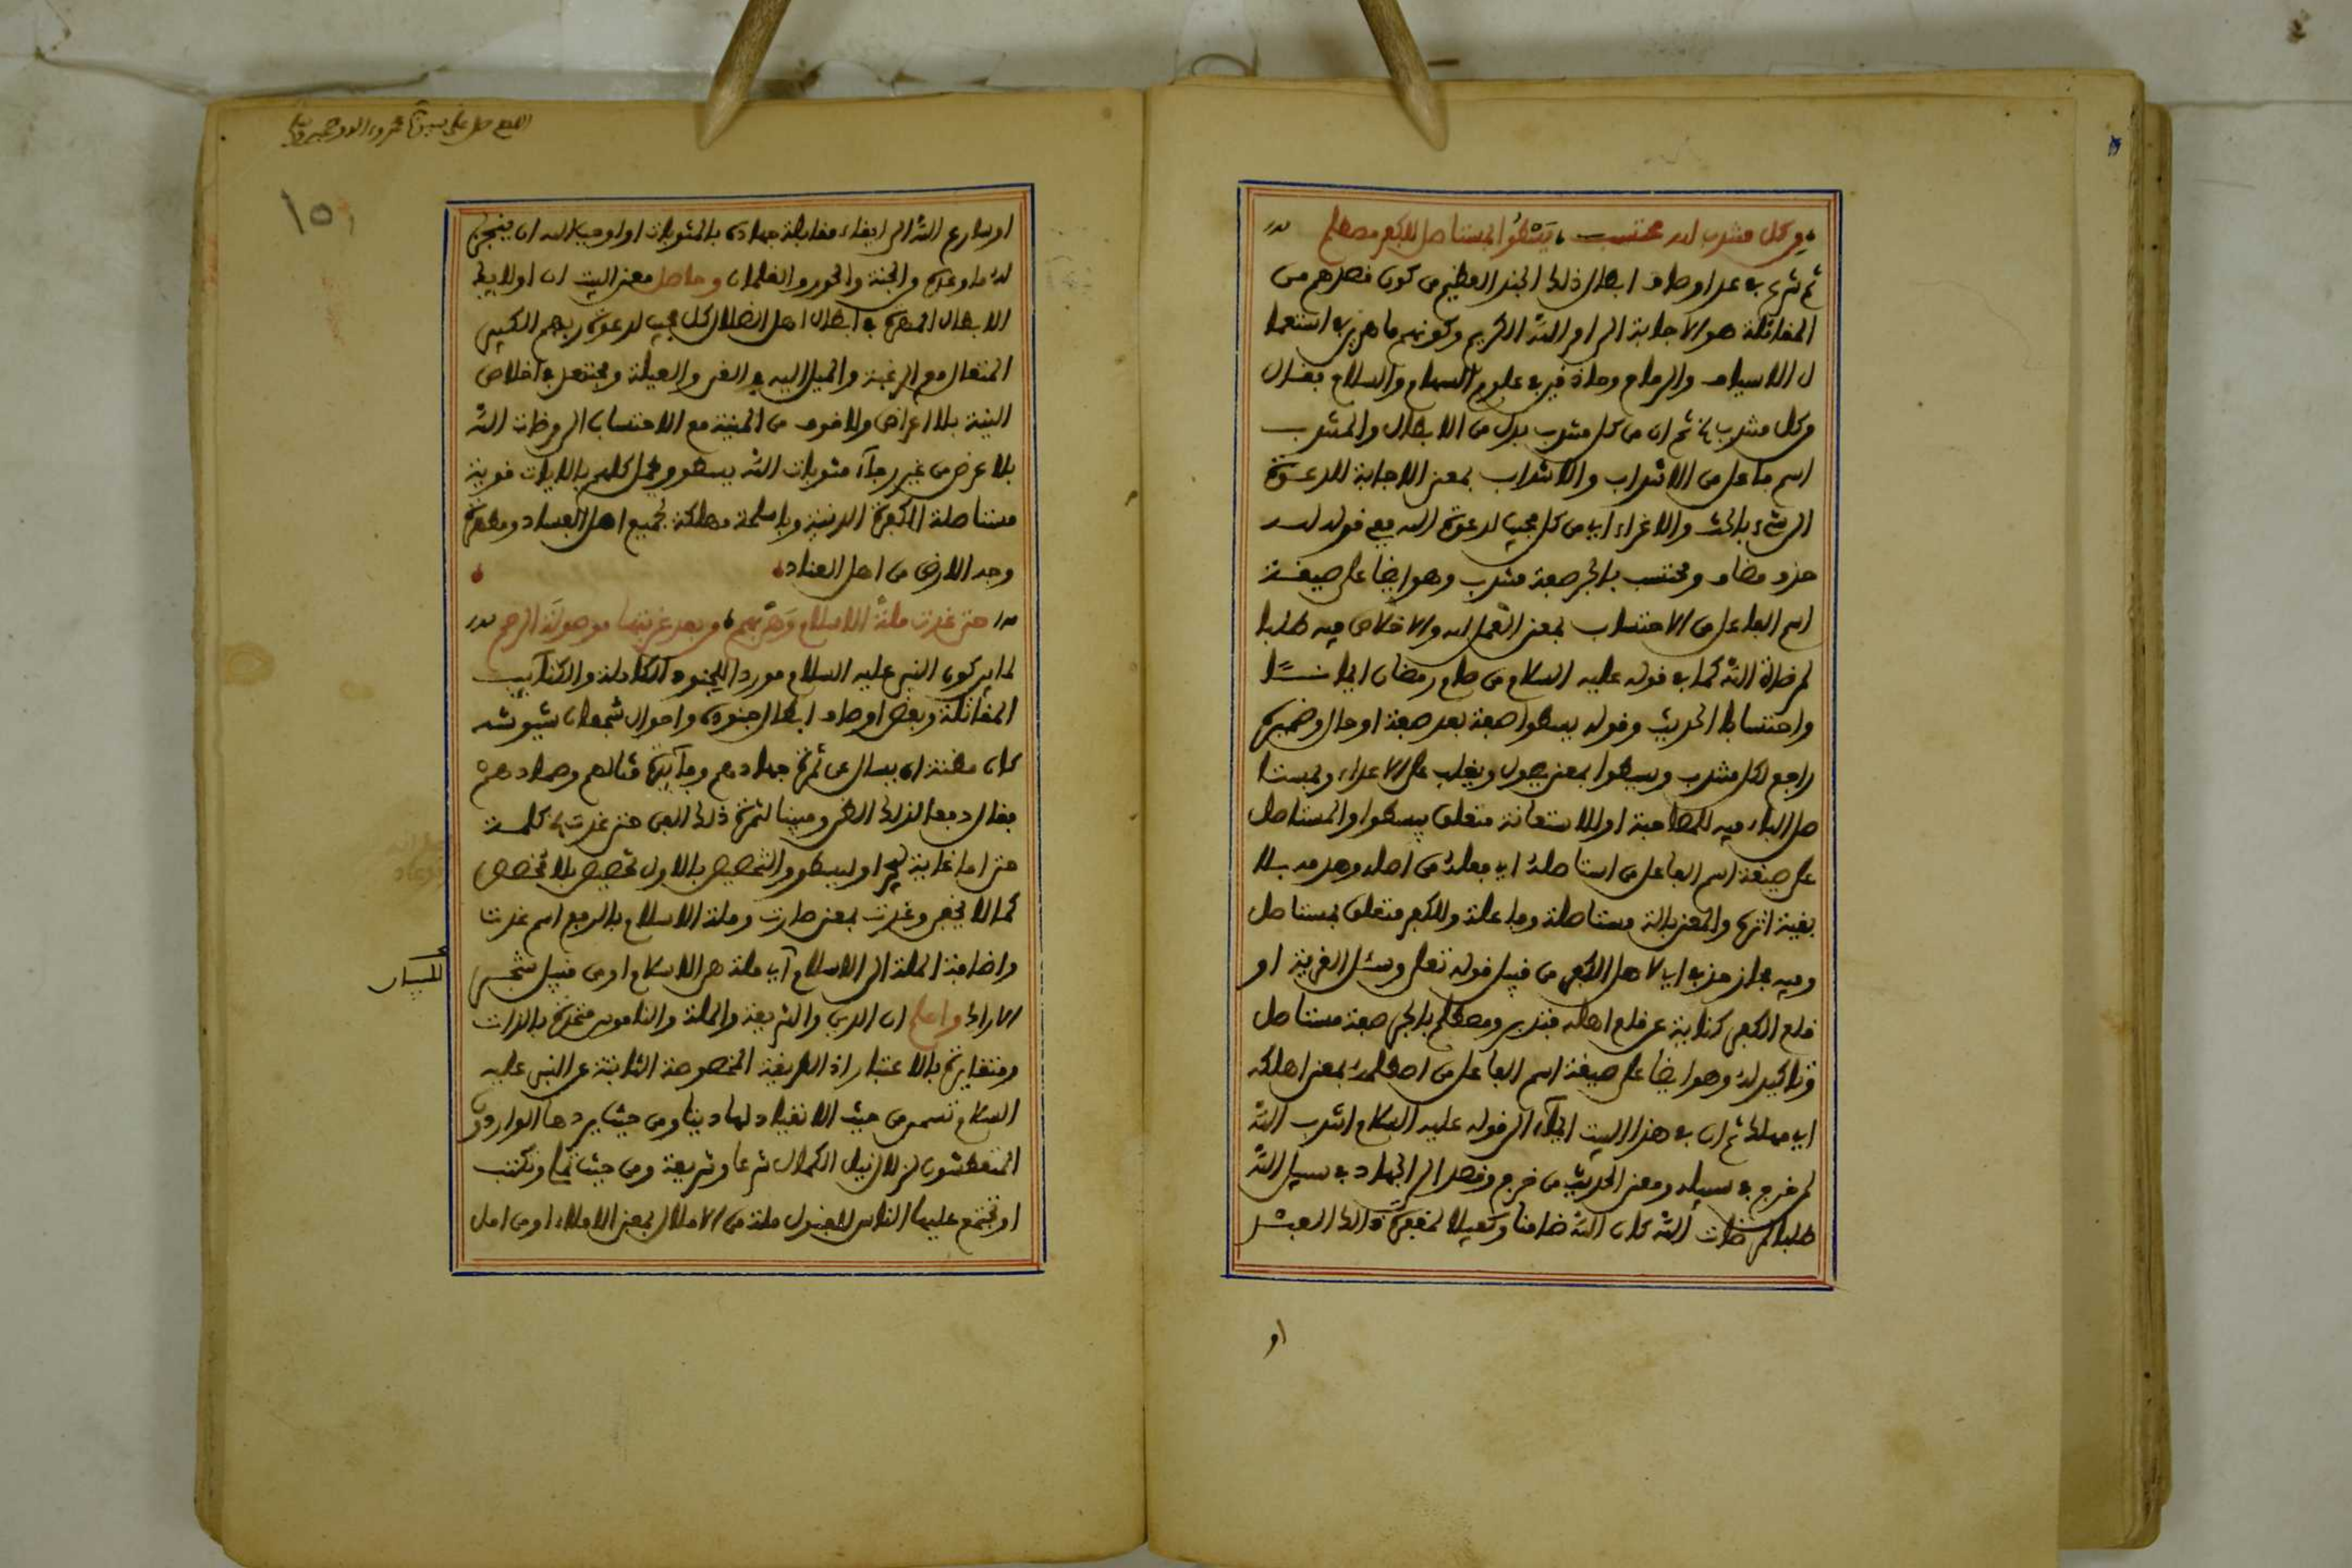 من كل منتدب لله محتسب يسطو بمستاصل للكفر مصطلم
ثم شرع في عد اوصاف ابطال ذلك الجند العظيم من كون قصدهم من
المقاتلة هو الاجابة الى امر الله الكريم وكونهم ماهرين في استعما
ل الاسياف والرماح وحاذقين في علوم السهام والسلاح فقال
من كل منتدب الخ ثم ان من كل منتدب بدل من الابطال والمنتدب
اسم فاعل من الانتداب والانتداب بمعنى الاجابة للدعوة
الى شيء بالحث والاغراء اي من كل مجيب لدعوة الله ففي قوله لله
حذف مضاف ومحتسب بالجر صفة منتدب وهو ايضا على صيغة
اسم الفاعل من الاحتساب بمعنى العمل لله والاخلاص فيه طلبا
لمرضاة الله كما في قوله عليه السلام من صام رمضان ايمانا
واحتسابا الحديث وقوله يسطوا صفة بعد صفة او حال وضميره
راجع لكل منتدب ويسطوا بمعنى يصول ويغلب على الاعداء وبمستا
صل الباء فيه للمصاحبة او للاستعانة متعلق بيسطوا والمستاصل
على صيغة اسم الفاعل من استاصله اي قلعه من اصله وهدمه بلا
بقية اثره والمعنى بالة مستاصلة وقاعلة وللكفر متعلق بمستاصل
وفيه مجاز حذف اي لاهل الكفر من قبيل قوله تعالى وسئل القرية او
قلع الكفر كناية عن قلع اهله فتدبر ومصطلم بالجر صفة مستاصل
وتاكيد له وهو ايضا على صيغة اسم الفاعل من اصطلمه بمعنى اهلكه
اي مهلك ثم ان في هذا البيت ايماء الى قوله عليه السلام انتدب الله
لمن خرج في سبيله ومعنى الحديث من خرج وقصد الى الجهاد في سبيل الله
طلبا لمرضات الله كان الله ضامنا وكفيلا
او
او سارع الله الى ايفاء مقابلة جهاده بالمثوبات او اوجب الله ان ينجز
له ما وعده من الجنة والحور والغلمان وحاصل معنى البيت ان اولايك
الابطال المهرة في ابطال اهل الضلال كل مجيب لدعوة ربهم الكبير
المتعال مع الرغبة والميل اليه والعيلة ومجتهد في اخلاص
النية بلا اعراض ولا خوف من المنية مع الاحتساب الى مرضات الله
بلا غرض من غير رجاء مثوبات الله يسطو ويحمل كلهم بالات قوية
مستاصلة للكفرة الدنية وباسلحة مهلكة لجميع اهل الفساد ومطهرة
وجه الارض من اهل العناد
حتى غدت ملة الاسلام وهي بهم من بعد غربتها موصولة الرحم
لما بين كون النبي عليه السلام موردا للجنود الكاملة والكتائب
المقاتلة وبعض اوصاف ابطال جنوده واحوال شجعان جيوشه
كان مظنة ان يسال عن ثمرة جهادهم وفائدة قتالهم وجهادهم
فقال دفعا لذلك الظن ومبينا لثمرة ذلك الفن حتى غدت الخ كلمة
حتى اما غاية ليجر او ليسطو والتخصيص بالاول تخصيص بلا مخصص
كما لا يخفى وغدت بمعنى صارت وملة الاسلام بالرفع اسم غدت
واضافة الملة الى الاسلام اي ملة هي الاسلام او من قبيل شجر
الاراك واعلم ان الدين والشريعة والملة والناموس متحدة بالذات
ومتغايرة بالاعتبار اذ الطريقة المخصوصة الثابتة عن النبي عليه
السلام تسمى من حيث الانقياد لها دينا ومن حيث يردها الواردون
المتعطشون لزلال نيل الكمال شرعا وشريعة ومن حيث تملى وتكتب
او تجتمع عليها الناس للقبول ملة من الاملال بمعنى الاملاء او من امل
١٥